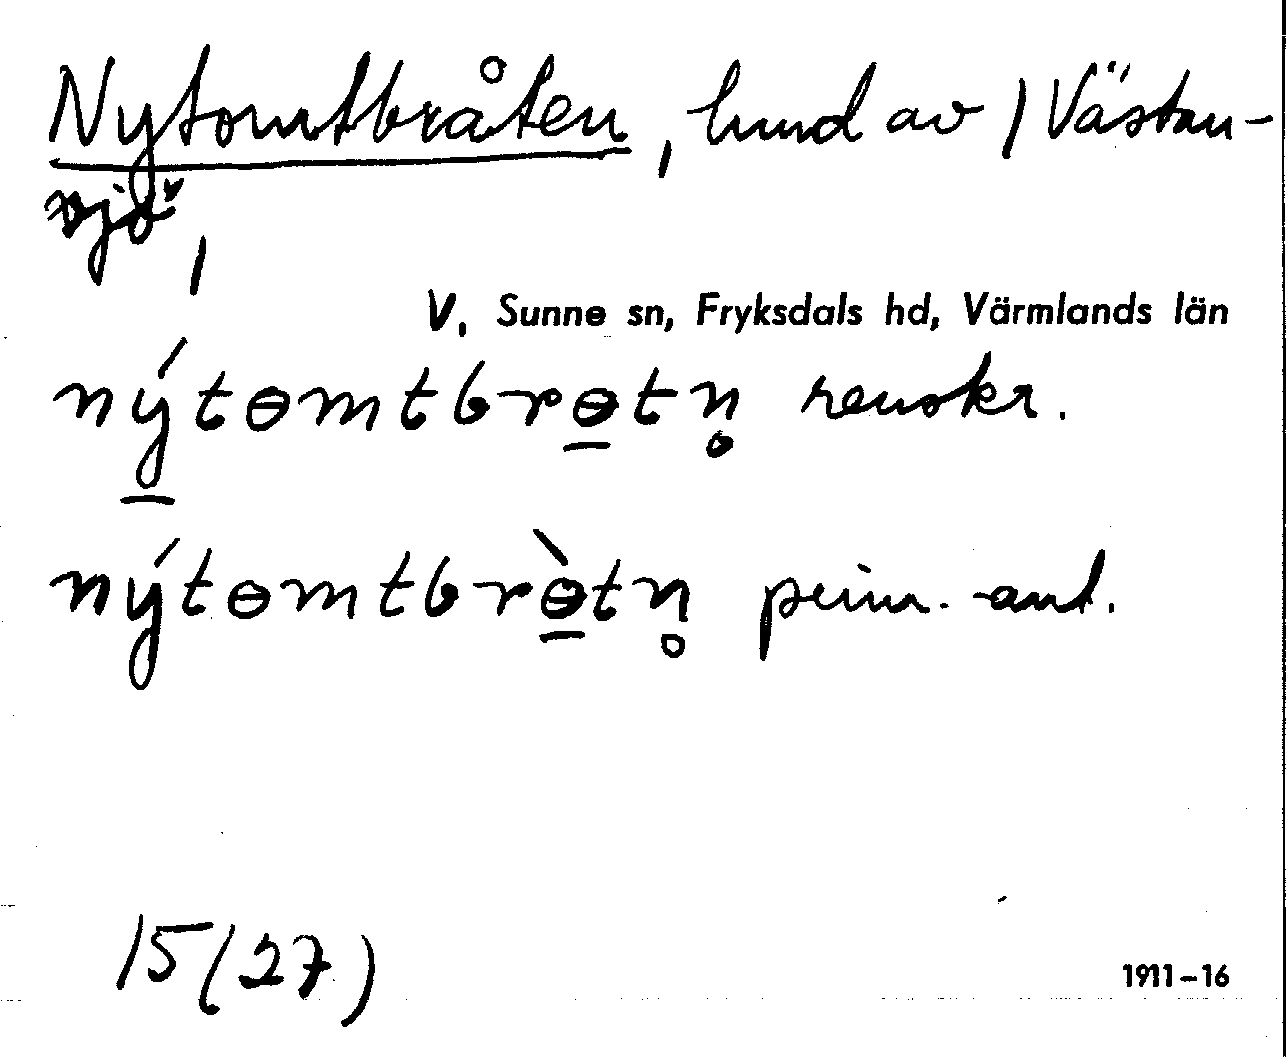 Nytomtbråten, hmd av /Västan-
sjö /
V. Sunne sn, Fryksdals hd, Värmlands län
nýtɵmtbrɵ̲tn̥ renskr.
nýtɵmtbrɵ̲̀tn̥ prim. ant.
15(27)
1911-16